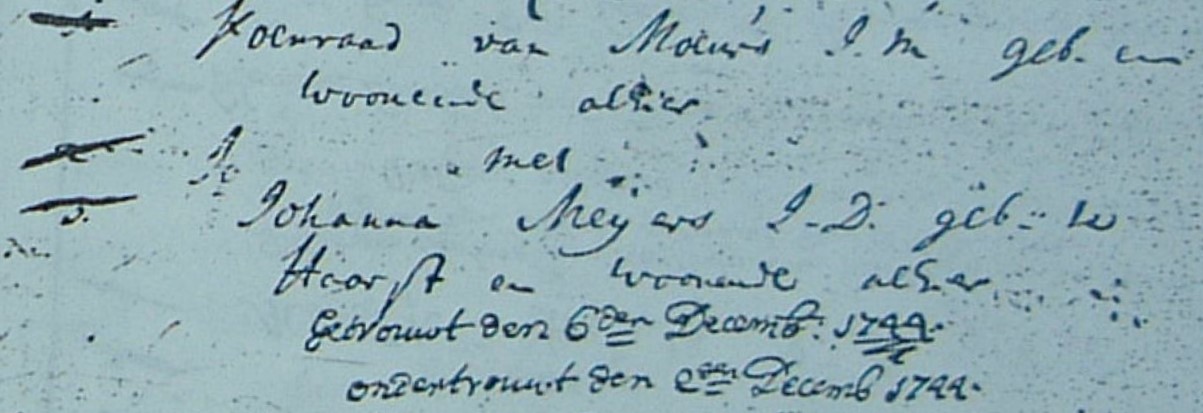 Koenraad van Moeurs J. M geb. en
Wooneende alhier
met
Johanna Meijers J. D. geb. te
Hoorst en woonende alhier
Getrouwt den 6den Decemb: 1744.
ondertrouwt den 2den Decemb 1744.